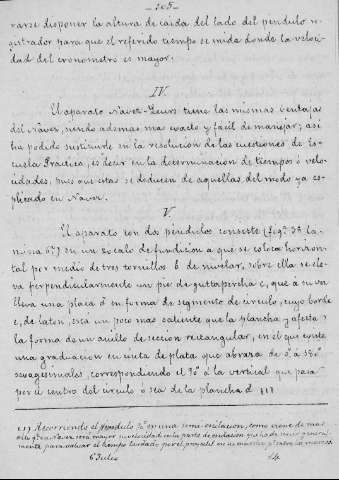 - 105 -
rarse disponer la altura de caida del lado del péndulo re-
gistrador para que el referido tiempo se mida donde la veloci-
dad del cronometro es mayor.
IV.
El aparato Navez-Leurs tiene las mismas ventajas
del Navez, siendo ademas mas exacto y fácil de manejar; asi
ha podido sustituirle en la resolucion de las cuestiones de Es-
cuela Practica, es decir en la determinacion de tiempos ó velo-
cidades, pues que estas se deducen de aquellas del modo ya es-
plicado en Navez.
V.
El aparato con dos péndulos consiste (fig.ª 3ª lá-
mina 6ª) en un zocalo de fundicion a que se coloca horizon-
tal por medio de tres tornillos b de nivelar, sobre ella se ele-
va perpendicularmente un pie de guttapercha c, que a su vez
lleva una placa d en forma de segmento de circulo, cuyo borde
e, de laton, está un poco mas saliente que la plancha y afecta
la forma de un anillo de seccion rectangular, en el que existe
una graduacion en cinta de plata que abraza de 0º á 150º
sexagesimales, correspondiendo el 70º á la vertical que pasa
por el centro del circulo ó sea de la plancha d (1)
(1) Recorriendo el péndulo en una semi oscilacion, como
sera mayor su velocidad en la parte de oscilacion
para valuar el tiempo tardado por el proyectil
6 Julio 14